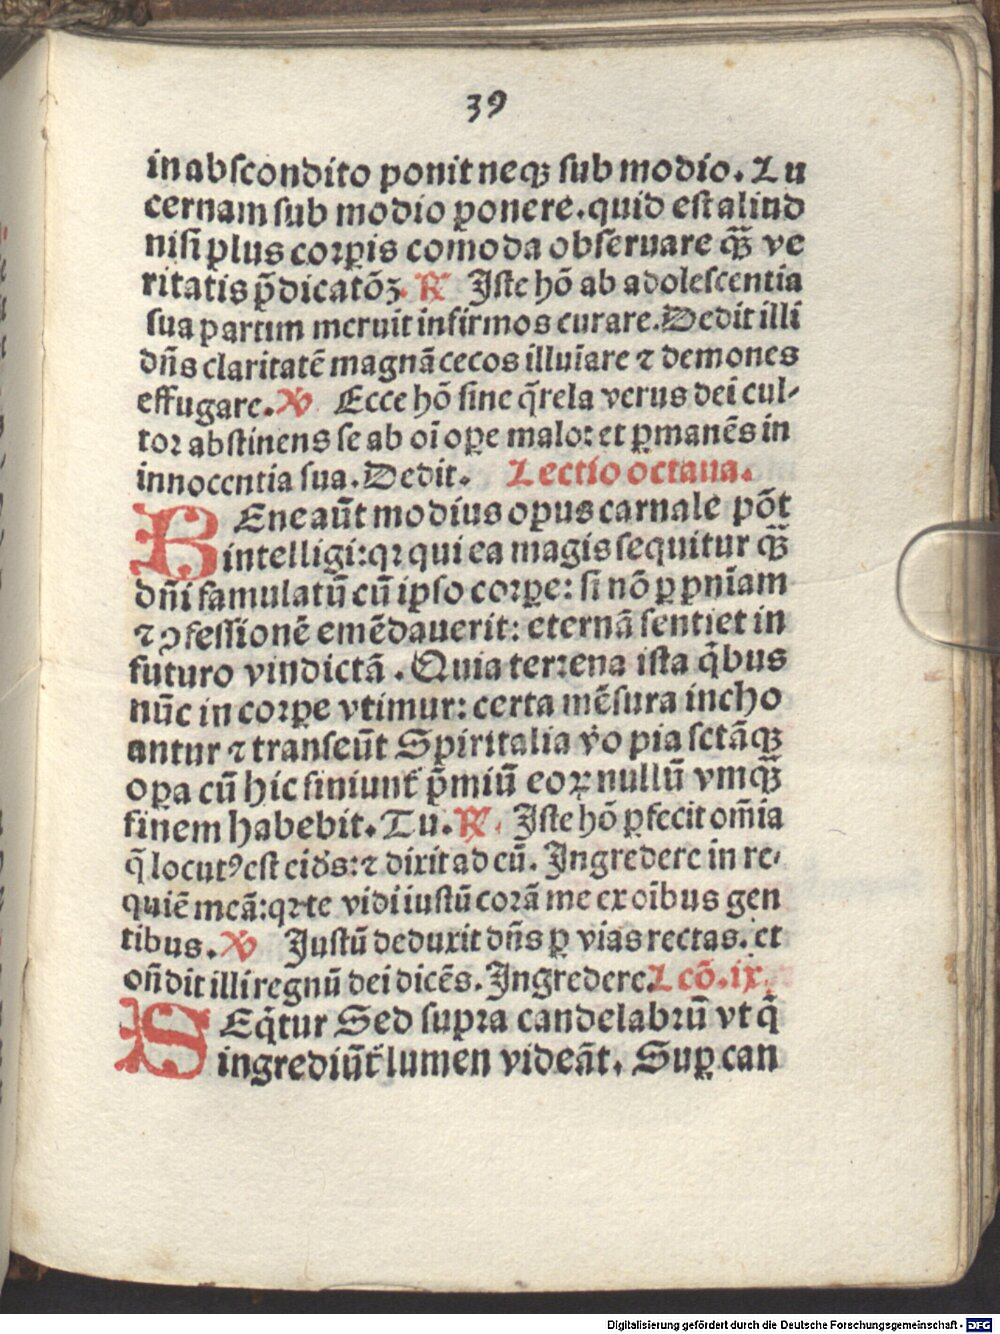 39
in abſcondito ponit neqꝫ ſub modio. Lu
cernam ſub modio ponere. quid eſt aliud
niſi plus coꝛꝑis comoda obſeruare qꝫ̃ ve
ritatis p̄dicatōꝫ. ℟ Iſte hō ab adoleſcentia
ſua partum meruit infirmos curare. Dedit illi
dn̄s claritatē magnā cecos illuīare ⁊ demones
effugare. ℣ Ecce hō ſine q̄rela verus dei cul⸗
toꝛ abſtinens ſe ab oī oꝑe malo: et ꝑmanēs in
innocentia ſua. Dedit. Lectio octaua.
BEne aūt modius opus carnale pōt
intelligi: qꝛ qui ea magis ſequitur qꝫ̃
dn̄i famulatū cū ipſo coꝛꝑe: ſi nō ꝑ pn̄iam
⁊ ꝯfeſſionē emēdauerit: eternā ſentiet in
futuro vindictā. Quia terrena iſta q̄bus
nūc in coꝛꝑe vtimur: certa mēſura incho
antur ⁊ tranſeūt Spiritalia v̄o pia ſctāqꝫ
oꝑa cū hic finiunt᷑ p̄miū eoꝝ nullū vmqꝫ̃
finem habebit. Tu. ℟ Iſte hō ꝑfecit om̄ia
q̄ locutꝰ eſt ei ds̄: ⁊ dixit ad eū. Ingredere in re⸗
quiē meā: qꝛ te vidi iuſtū coꝛā me ex oībus gen
tibus. ℣ Iuſtū deduxit dn̄s ꝑ vias rectas. et
on̄dit illi regnū dei dicēs. Ingredere. Lcō. ix.
SEq̄tur Sed ſupꝛa candelabꝛū vt q̄
ingrediūt᷑ lumen videāt. Suꝑ can
Digitalisierung gefördert durch die Deutsche Forschungsgemeinschaft - DFG